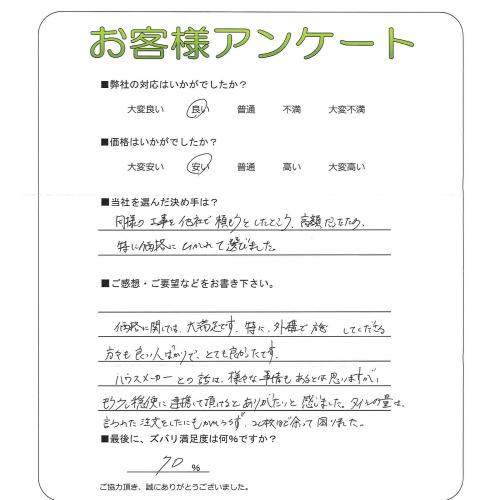 お客様アンケート
■弊社の対応はいかがでしたか？
大変良い 良い 普通 不満 大変不満
■価格はいかがでしたか？
大変安い 安い 普通 高い 大変高い
■当社を選んだ決め手は？
同様の工事を他社で頼もうとしたところ、高額だったため、
特に価格にひかれて選びました。
■ご感想・ご要望などをお書き下さい。
価格に関しては、大満足です。特に、外構で してくださる
方々も良い人ばかりで、とても良かったです。
ハウスメーカーとの話は、様々な事情もあるとは思いますが、
もう少し機便に連携して頂けるとありがたいと感じました。タイルの量は、
言われた注文をしたにもかかわらず、20枚ほど余って困りました。
■最後に、ズバリ満足度は何%ですか？
70 %
ご協力頂き、誠にありがとうございました。